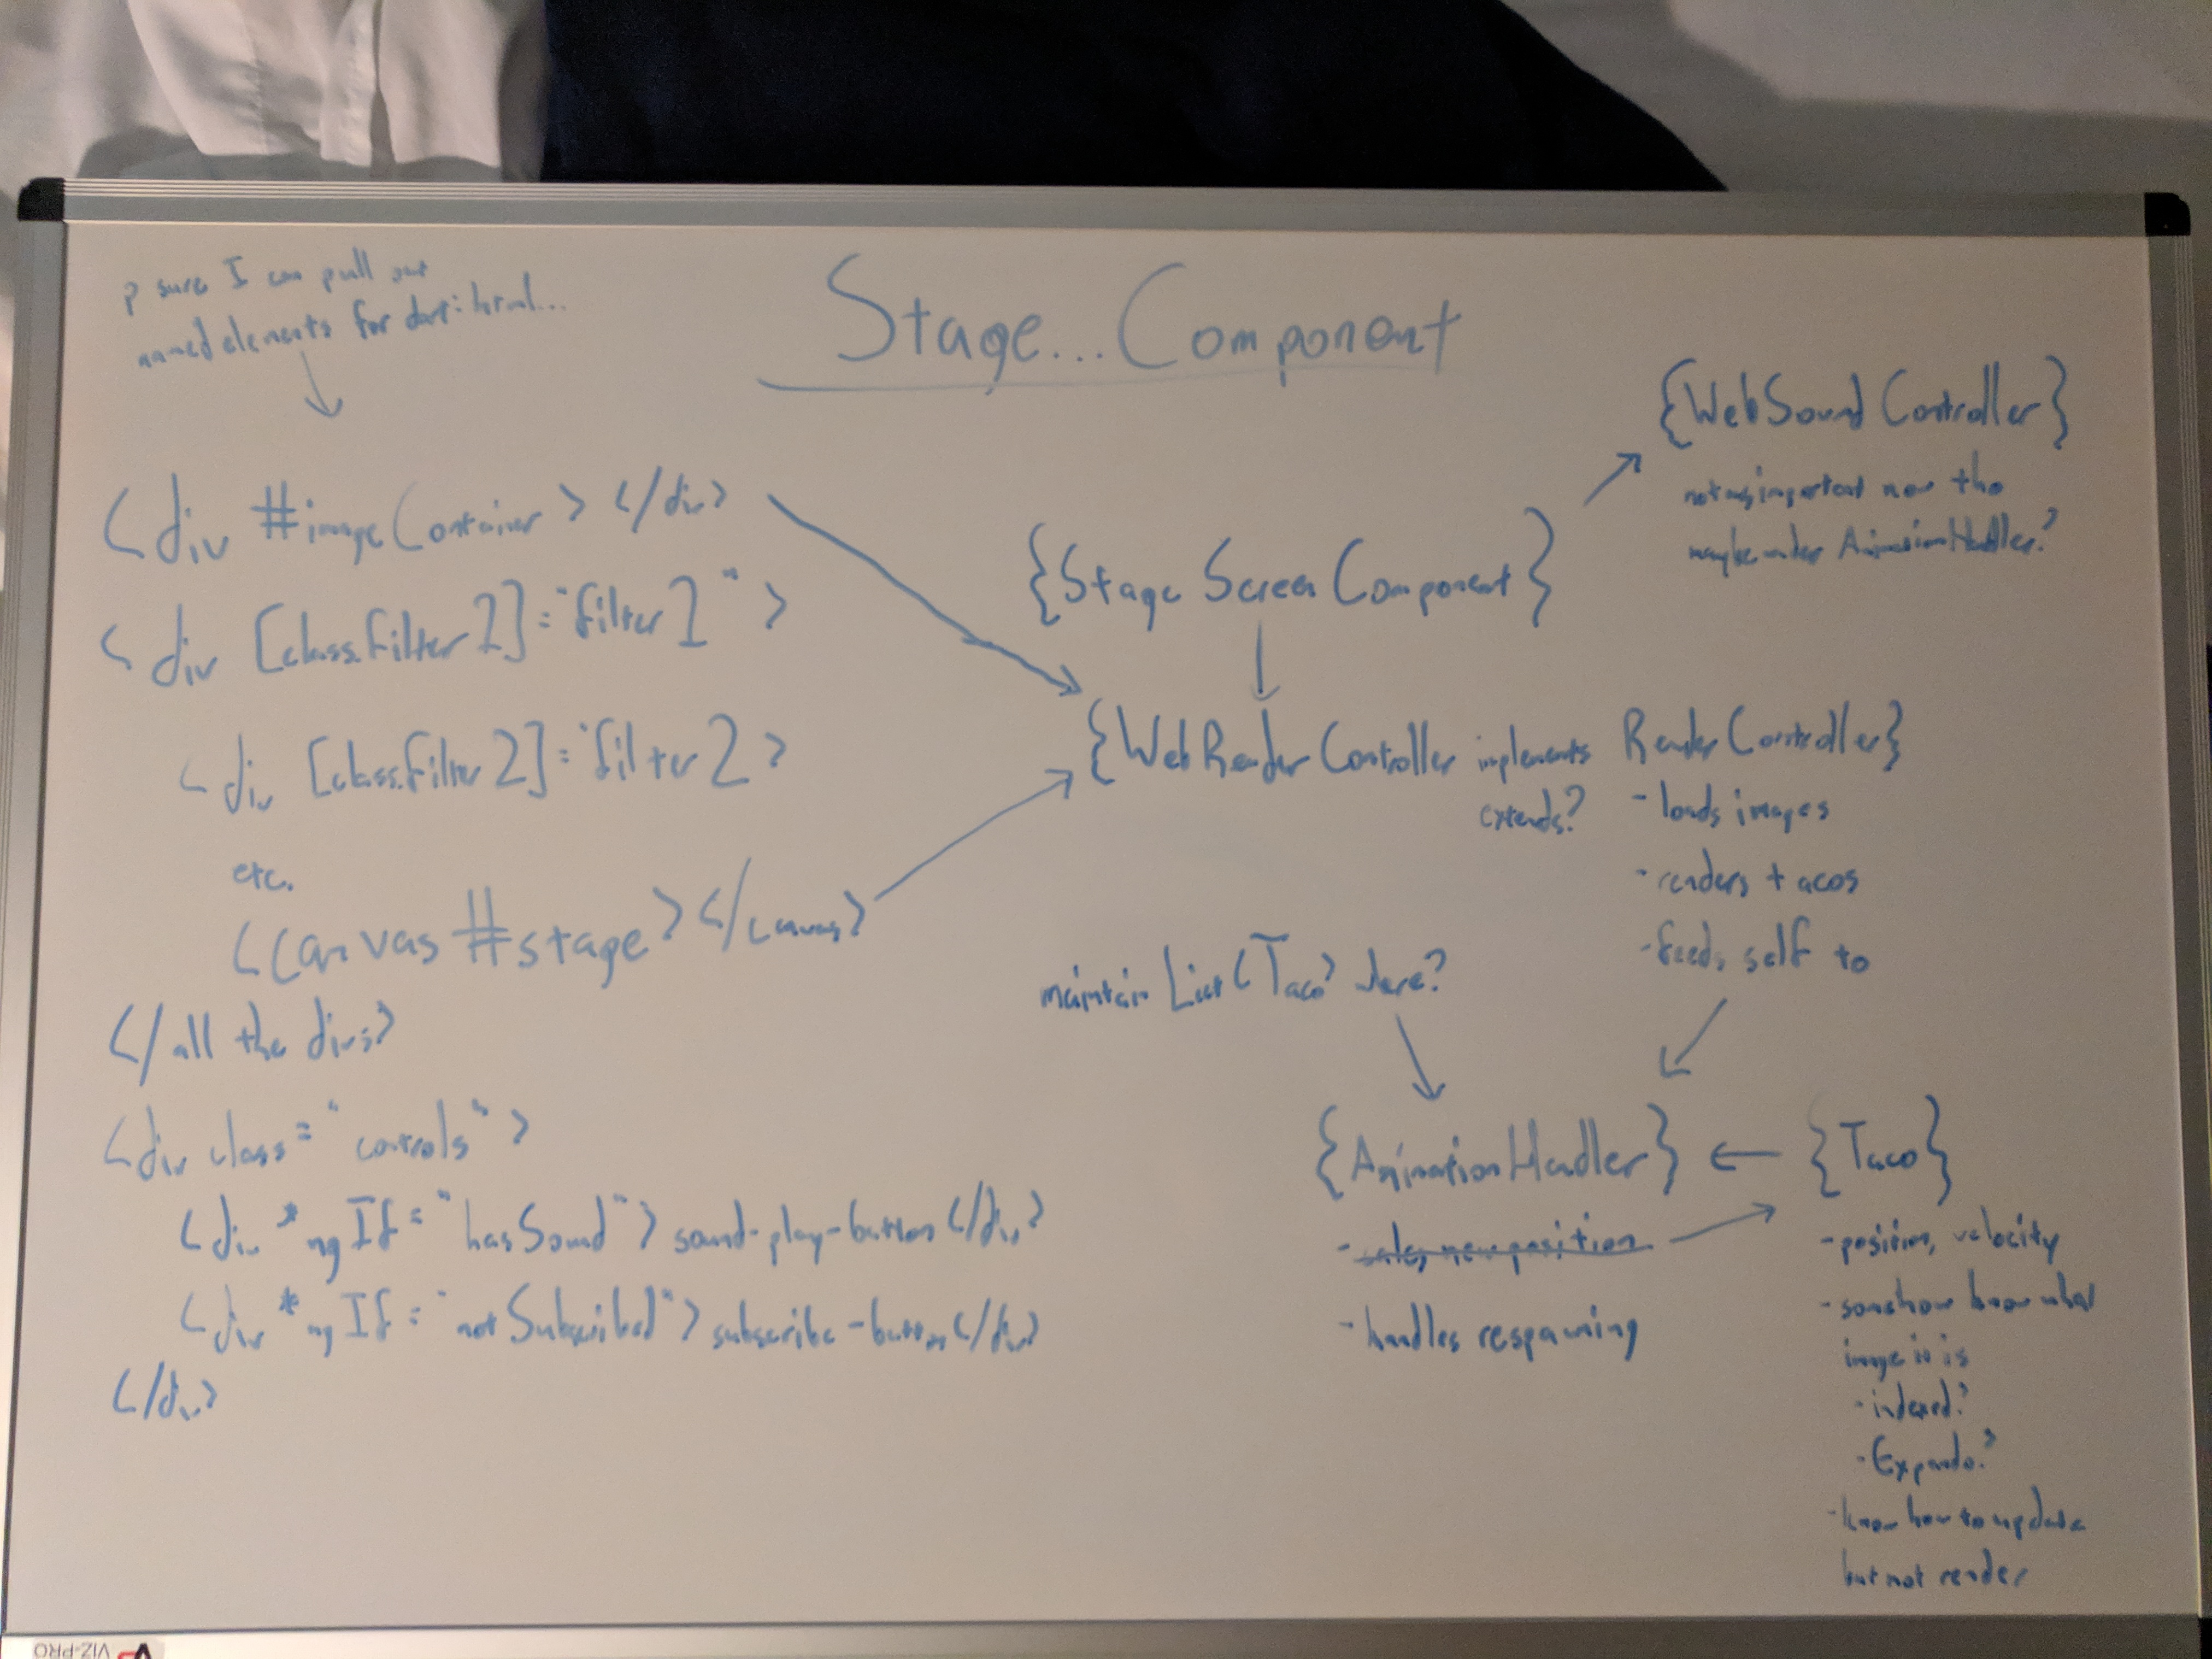 Stage...Component
p sure I can pull out
named elements for dart:html...
<div #imageContainer> </div>
<div [class.filter2]="filter1">
<div [class.filter2]="filter2>
etc.
<canvas #stage></canvas>
</all the divs>
<div class="controls">
<div *ngIf="hasSound">sound-play-button</div>
<div *ngIf="notSubscribed">subscribe-button</div>
</div>
{WebSoundController}
not as important now tho
maybe under AnimationHandler?
{StageScreenComponent}
{WebRenderController implements RenderController}
extends?
- loads images
- renders tacos
- feeds self to
maintain List<Taco> where?
{AnimationHandler}
- new position
- handles respawning
{Taco}
- position, velocity
- somehow know what
image it is
- indexed?
- Expando?
- know how to update
but not render
VIZ-PRO